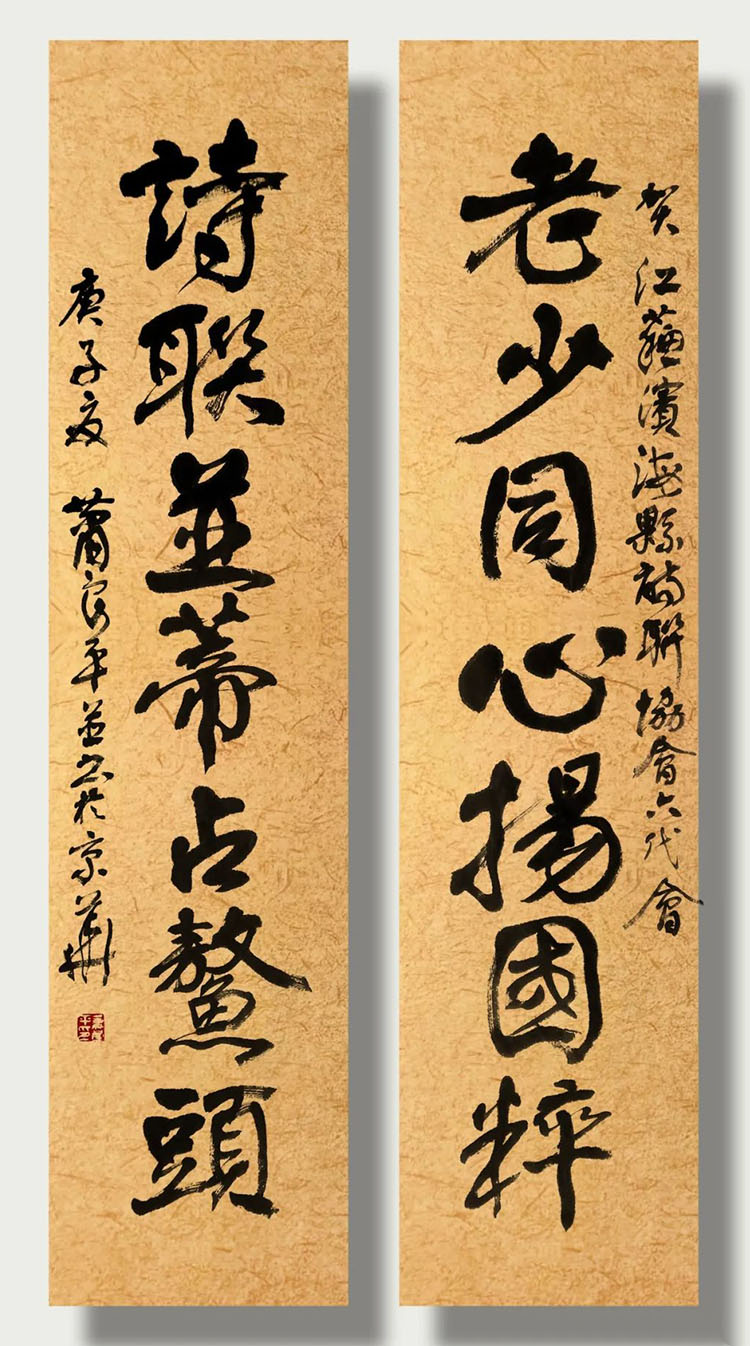 賀江蘇濱海縣詩聯協會六代會
老少同心揚國粹
詩聯並蒂占鰲頭
庚子夏 蕭良平並書於京華